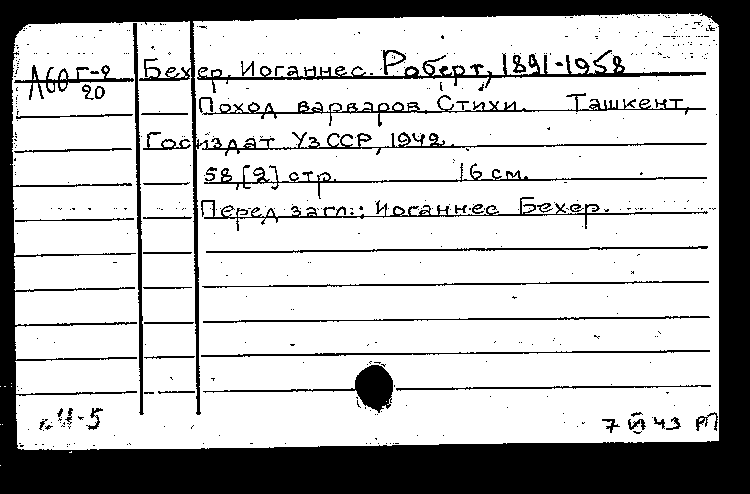 Л60 Г-2 Бехер, Иоганнес. Роберт, 1891-1958
20
Поход варваров. Стихи. Ташкент,
Госиздат УзССР, 1942.
58,[2] стр. 16 см.
Перед загл.: Иоганнес Бехер.
И-5
7 43